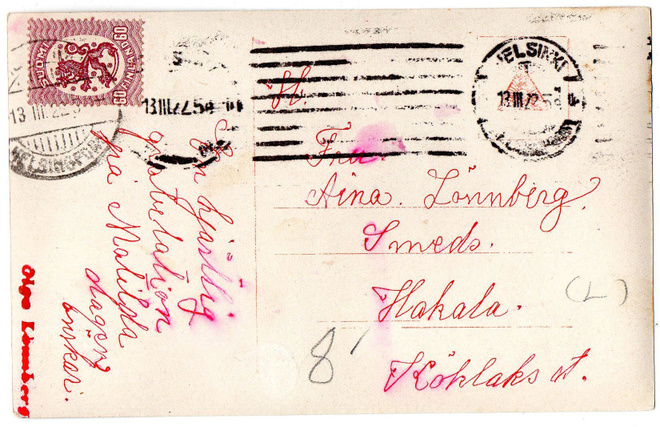 60 60
SUOMI FINLAND
60 60
13 III 22
HELSINGFORS
13 III 22. 5 4
HELSINKI
13 III 22
En hjärtlig
gratulation
på Matilda
dagen
önskar.
Olga Lönnberg
Fru.
Aina. Lönnberg.
Smeds.
Hakala.
Köhlaks st.
8'
(L)